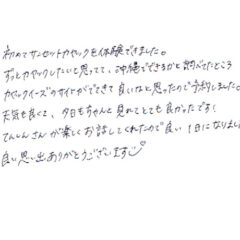 初めてサンセットカヤックを体験できました。
ずっとカヤックしたいと思ってて、沖縄でできるかと調べてたところ
カヤックイーズのサイトがでてきて良いなと思ったので予約しました。
天気も良くて、夕日もちゃんと見れてとても良かったです!
てんしんさんが楽しくお話してくれたので良い1日になりまし
良い思い出ありがとうございます